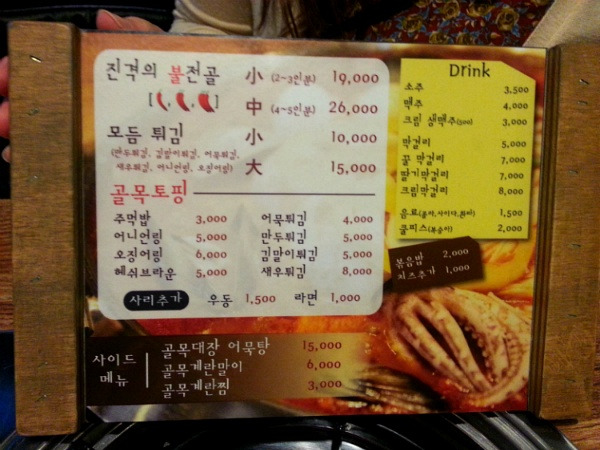 진격의 불전골 小 (2~3인분) 19,000
中 (4~5인분) 26,000
모듬 튀김 小 10,000
(만두튀김, 김말이튀김, 어묵튀김,
새우튀김, 어니언링, 오징어링) 大 15,000
골목토핑
주먹밥 3,000 어묵튀김 4,000
어니언링 5,000 만두튀김 5,000
오징어링 6,000 김말이튀김 5,000
헤쉬브라운 5,000 새우튀김 8,000
사리추가 우동 1,500 라면 1,000
사이드 메뉴
골목대장 어묵탕 15,000
골목계란말이 6,000
골목계란찜 3,000
Drink
소주 3,500
맥주 4,000
크림 생맥주(500) 3,000
막걸리 5,000
꿀 막걸리 7,000
딸기막걸리 7,000
크림막걸리 8,000
음료(콜라,사이다,환타) 1,500
쿨피스(복숭아) 2,000
볶음밥 2,000
치즈추가 1,000